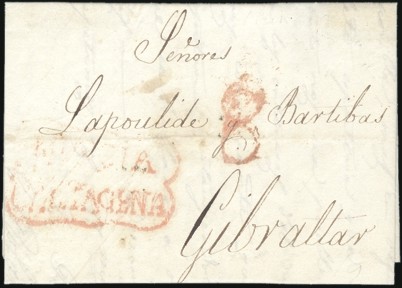 Señores
Lapoulide y Bartibas
8
MURCIA
CARTAGENA
Gibraltar